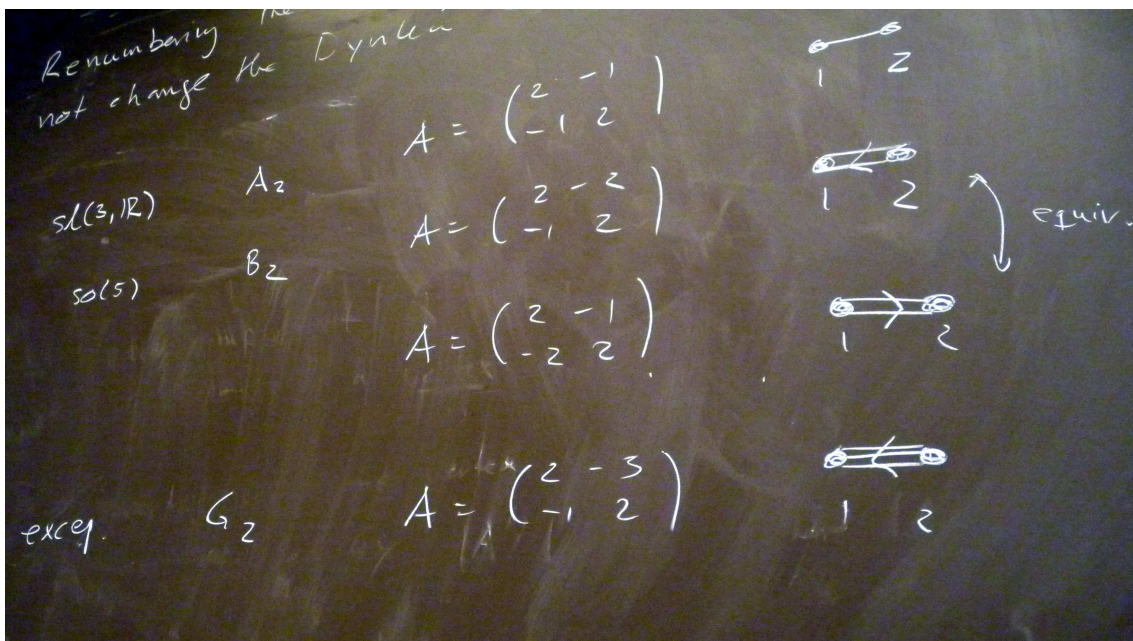 Renumbering the
not change the Dynkin
A = ( 2 -1
-1 2 )
1 2
sl(3,IR) A2
A = ( 2 -2
-1 2 )
1 2
equiv.
so(5) B2
A = ( 2 -1
-2 2 )
1 2
excep. G2
A = ( 2 -3
-1 2 )
1 2